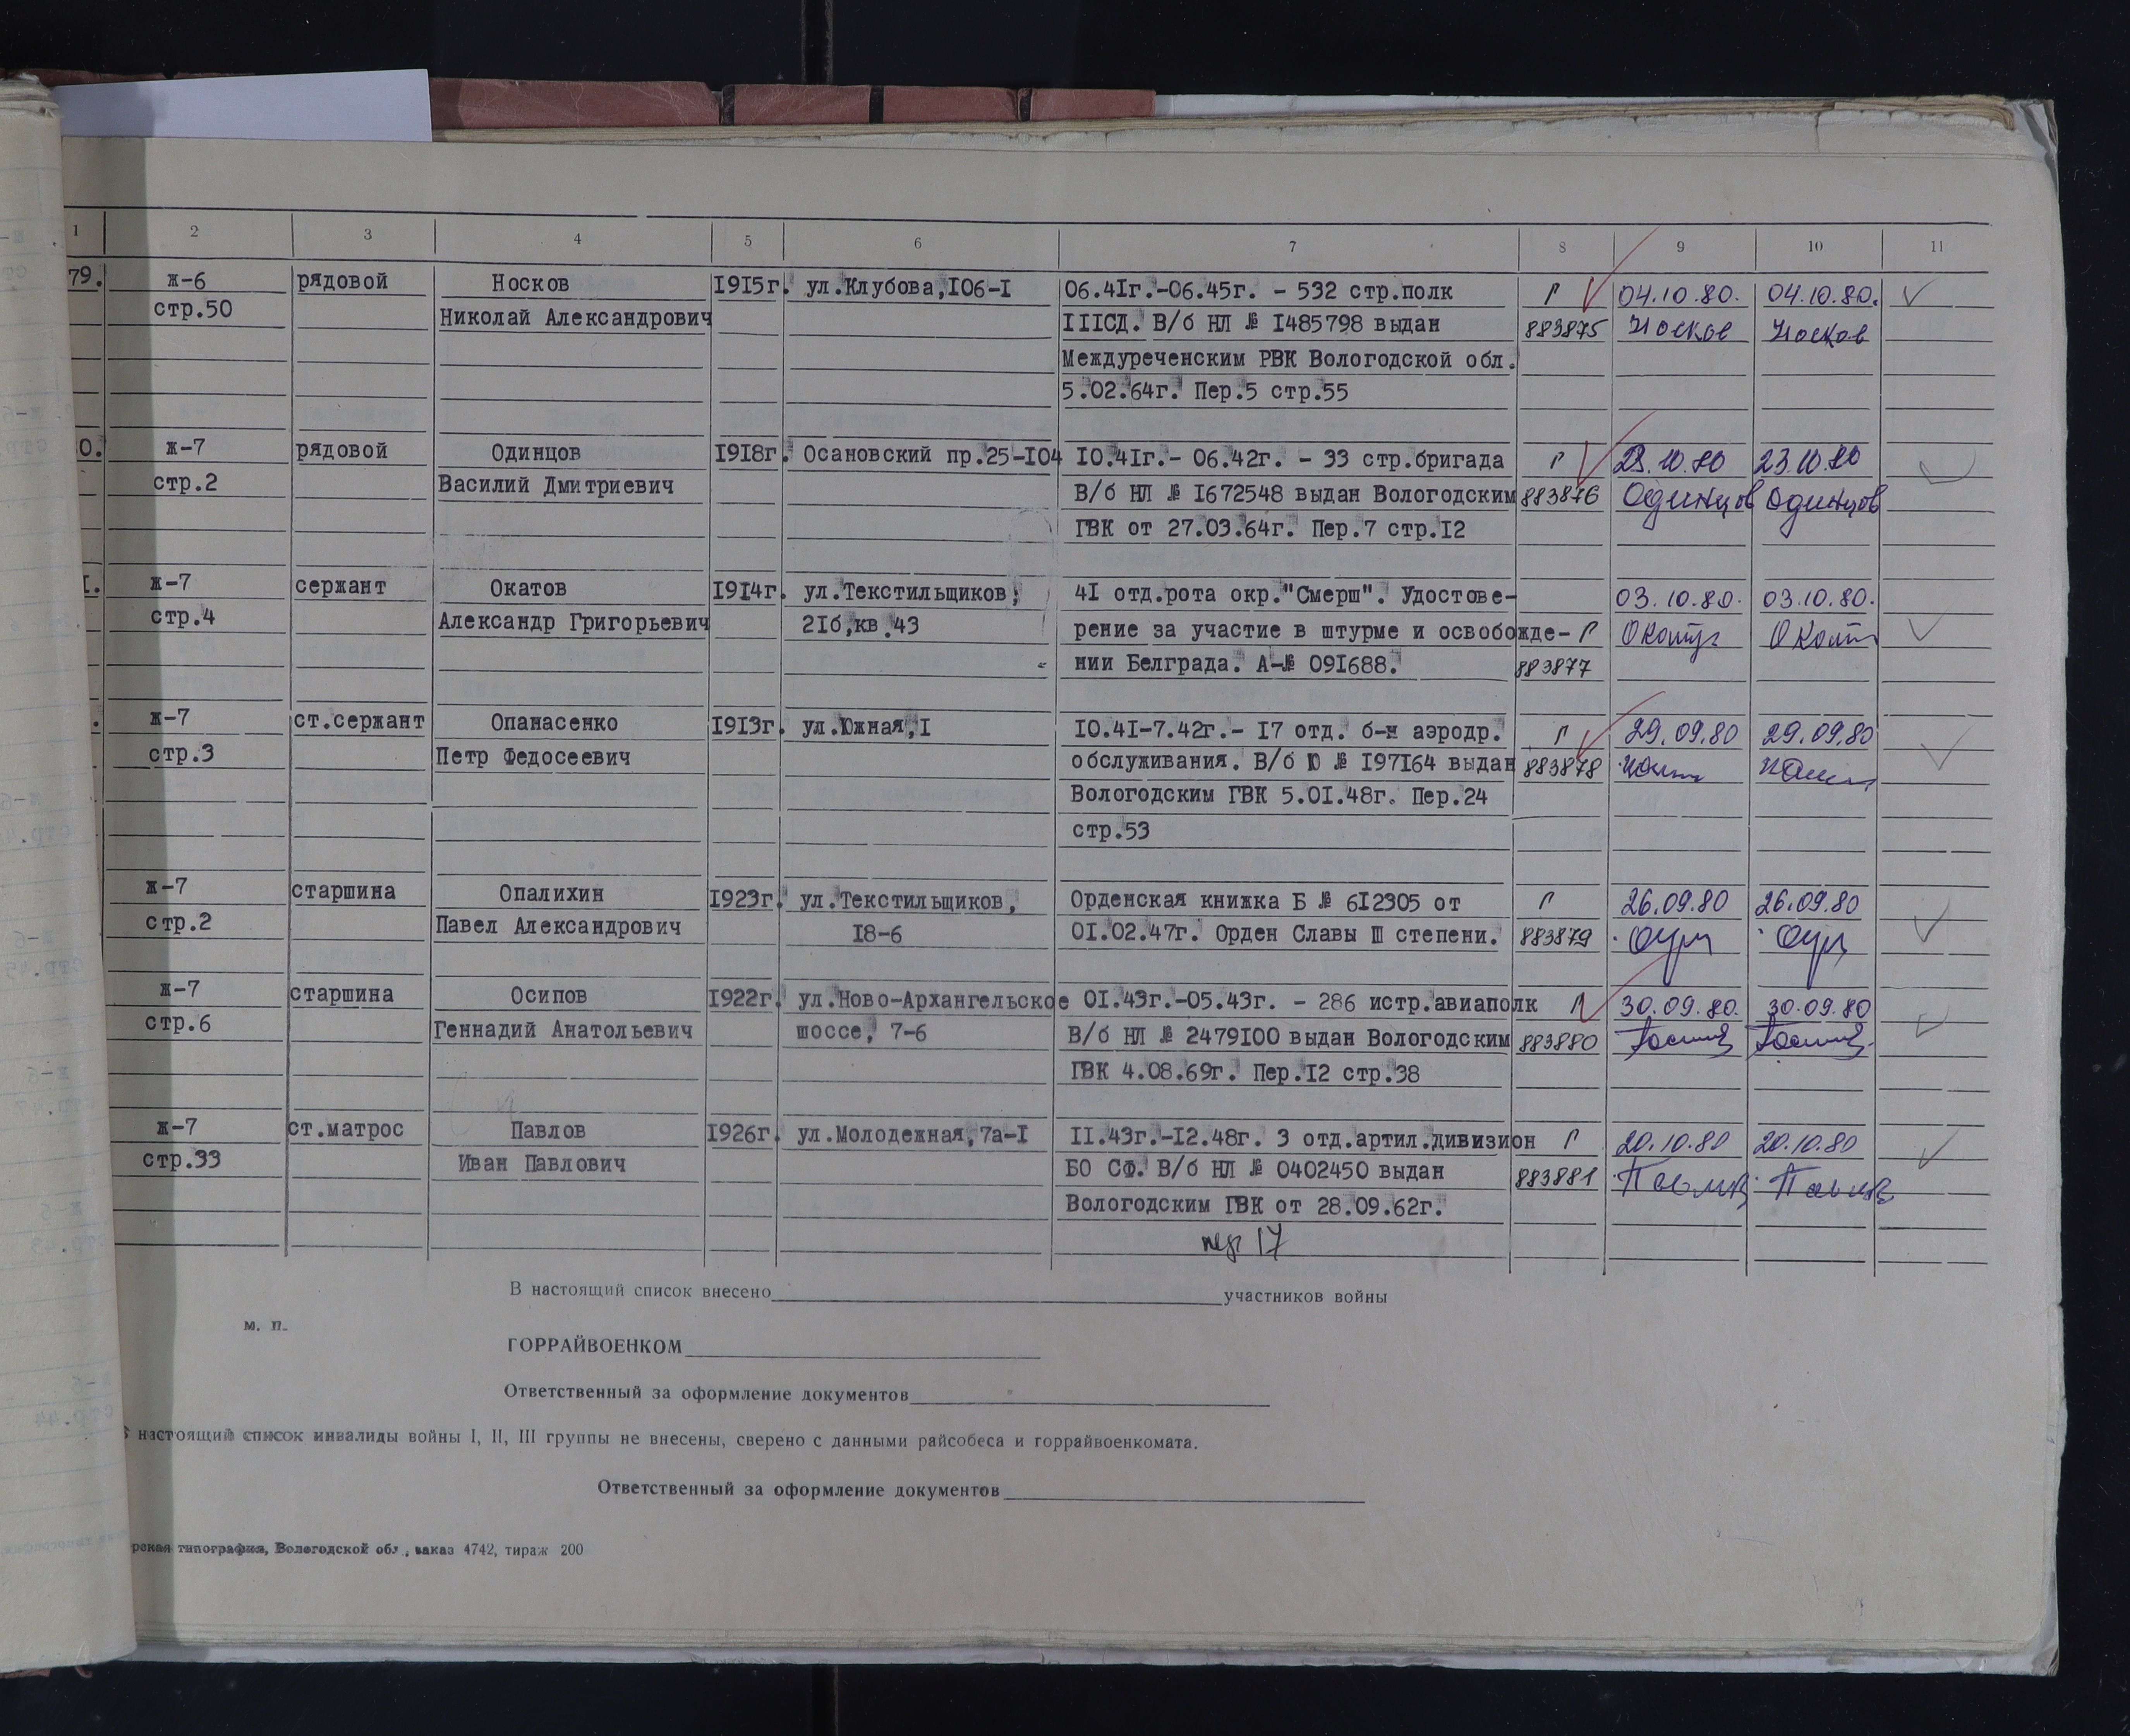 1 2 3 4 5 6 7 8 9 10 11
79. ж-6 рядовой Носков 1915г. ул.Клубова,106-1 06.41г.-06.45г. - 532 стр.полк Г 04.10.80. 04.10.80.
стр.50 Николай Александрович IIIСД. В/б НЛ № 1485798 выдан 883875 Носков Носков
Междуреченским РВК Вологодской обл.
5.02.64г. Пер.5 стр.55
0. ж-7 рядовой Одинцов 1918г. Осановский пр.25-104 10.41г.- 06.42г. - 33 стр.бригада Г 23.10.80 23.10.80
стр.2 Василий Дмитриевич В/б НЛ № 1672548 выдан Вологодским 883876 Одинцов Одинцов
ГВК от 27.03.64г. Пер.7 стр.12
1. ж-7 сержант Окатов 1914г. ул.Текстильщиков, 41 отд.рота окр."Смерш". Удостове- 03.10.80. 03.10.80.
стр.4 Александр Григорьевич 21б,кв.43 рение за участие в штурме и освобожде- Г
нии Белграда. А-№ 091688. 883877
. ж-7 ст.сержант Опанасенко 1913г. ул.Южная,1 10.41-7.42г.- 17 отд. б-н аэродр. Г 29.09.80 29.09.80
стр.3 Петр Федосеевич обслуживания. В/б Ю № 197164 выдан 883878
Вологодским ГВК 5.01.48г. Пер.24
стр.53
ж-7 старшина Опалихин 1923г. ул.Текстильщиков, Орденская книжка Б № 612305 от Г 26.09.80 26.09.80
стр.2 Павел Александрович 18-6 01.02.47г. Орден Славы III степени. 883879
ж-7 старшина Осипов 1922г. ул.Ново-Архангельское 01.43г.-05.43г. - 286 истр.авиаполк Г 30.09.80. 30.09.80
стр.6 Геннадий Анатольевич шоссе, 7-6 В/б НЛ № 2479100 выдан Вологодским 883880
ГВК 4.08.69г. Пер.12 стр.38
ж-7 ст.матрос Павлов 1926г. ул.Молодежная,7а-1 11.43г.-12.48г. 3 отд.артил.дивизион Г 20.10.80 20.10.80
стр.33 Иван Павлович БО СФ. В/б НЛ № 0402450 выдан 883881
Вологодским ГВК от 28.09.62г.
пер 17
В настоящий список внесено участников войны
м. п.
ГОРРАЙВОЕНКОМ
Ответственный за оформление документов
настоящий список инвалиды войны I, II, III группы не внесены, сверено с данными райсобеса и горрайвоенкомата.
Ответственный за оформление документов
рская типография, Вологодской обл., заказ 4742, тираж 200